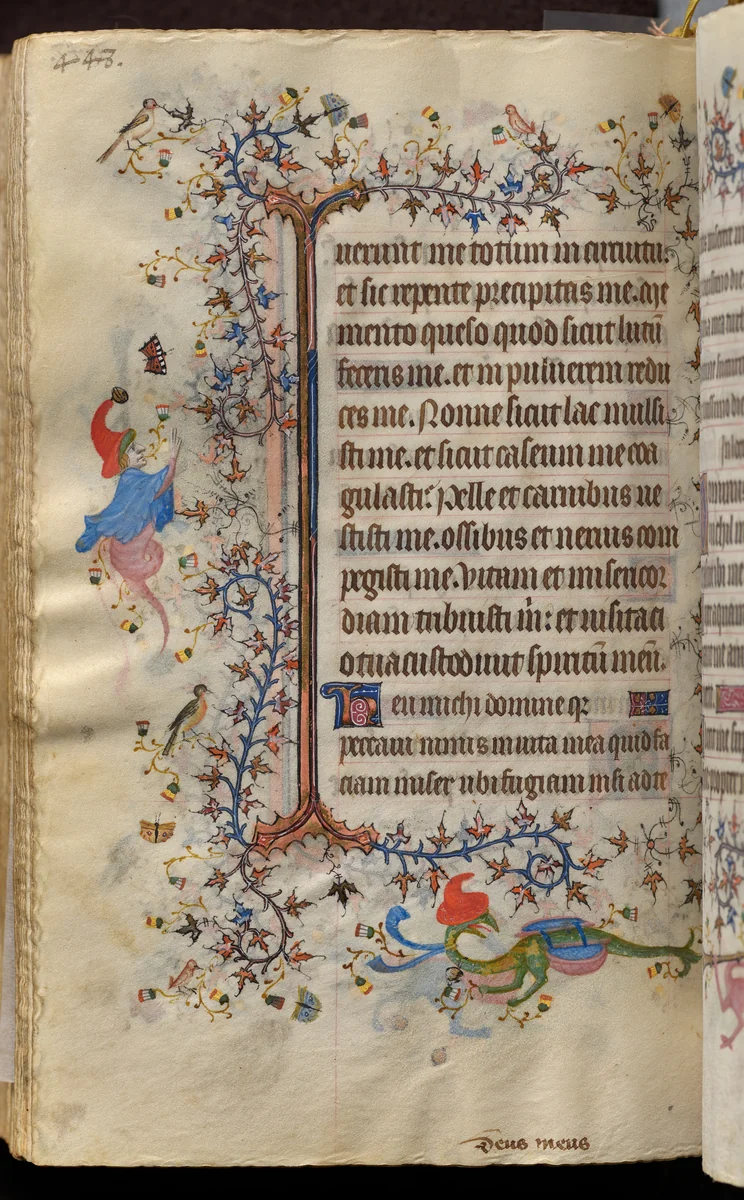 443.
uerunt me totum in circuitu.
et sic repente precipitas me. Me
mento queso quod sicut lutū
feceris me. et in puluerem redu
ces me. Nonne sicut lac mulsi
sti me. et sicut caseum me coa
gulasti? Pelle et carnibus ue
stisti me. ossibus et neruis com
pegisti me. Vitam et misericor
diam tribuisti m̄: et uisitaci
o tua custodiuit spiritū meū.
Heu michi domine qꝛ
peccaui nimis in uita mea quid fa
ciam miser ubi fugiam nisi ad te
Deus meus